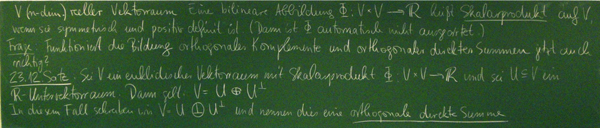 V (n-dim.) reeller Vektorraum Eine bilineare Abbildung Φ: V×V → ℝ heißt Skalarprodukt auf V,
wenn sie symmetrisch und positiv definit ist. (Dann ist Φ automatisch nicht ausgeartet.)
Frage: Funktioniert die Bildung orthogonaler Komplemente und orthogonaler direkten Summen jetzt auch
richtig?
23.12 Satz: Sei V ein euklidischer Vektorraum mit Skalarprodukt Φ: V×V → ℝ und sei U ⊆ V ein
ℝ-Untervektorraum. Dann gilt: V = U ⊕ U^⊥
In diesem Fall schreiben wir V = U ⊕ U^⊥ und nennen dies eine orthogonale direkte Summe